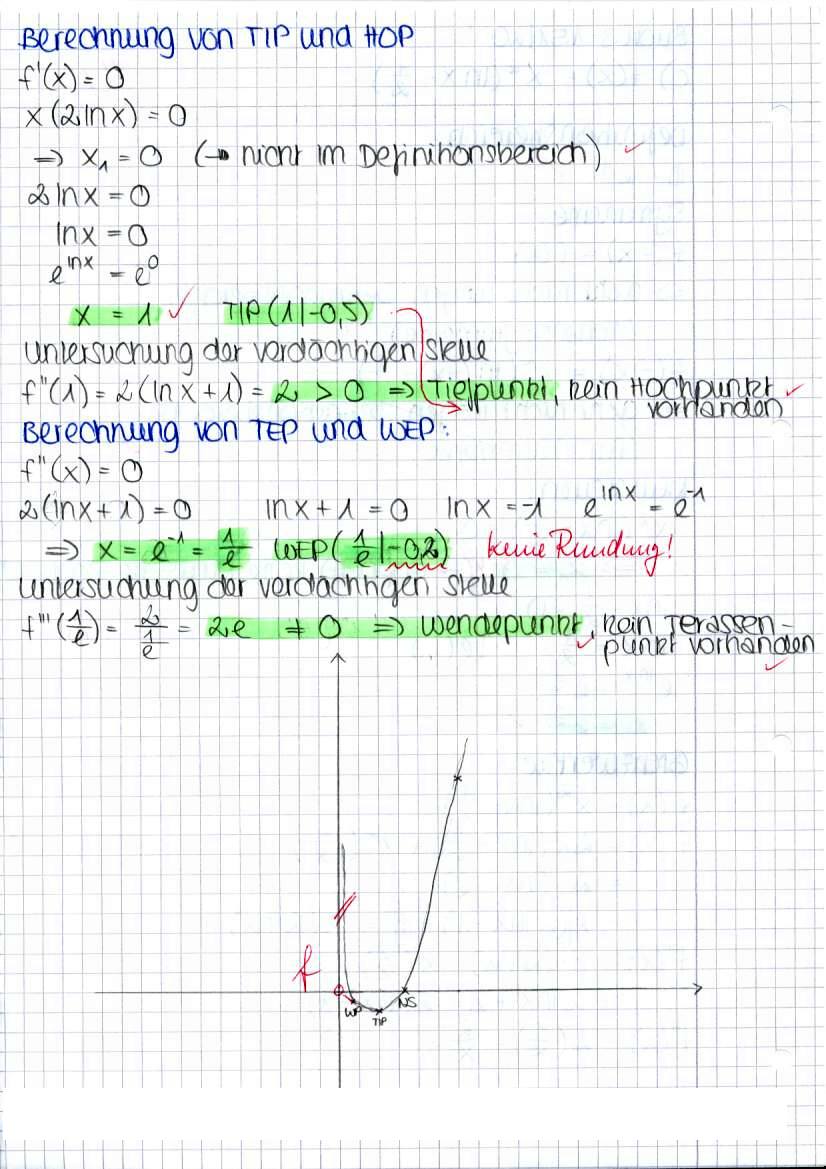 Berechnung von TIP und HOP
f'(x) = 0
x(2 ln x) = 0
⇒ x₁ = 0 (→ nicht im Definitionsbereich) ✓
2 ln x = 0
ln x = 0
e^(ln x) = e^0
x = 1 ✓ TIP(1|-0,5)
Untersuchung der verdächtigen Stelle
f''(1) = 2(ln x + 1) = 2 > 0 ⇒ Tiefpunkt, kein Hochpunkt ✓
vorhanden
Berechnung von TEP und WEP:
f''(x) = 0
2(ln x + 1) = 0 ln x + 1 = 0 ln x = -1 e^(ln x) = e^(-1)
⇒ x = e^(-1) = 1/e WEP(1/e|-0,2) keine Rundung!
Untersuchung der verdächtigen Stelle
f'''(1/e) = 2/(1/e) = 2e ≠ 0 ⇒ Wendepunkt, kein Terassen-
✓ punkt vorhanden
✓
f
WP TIP NS